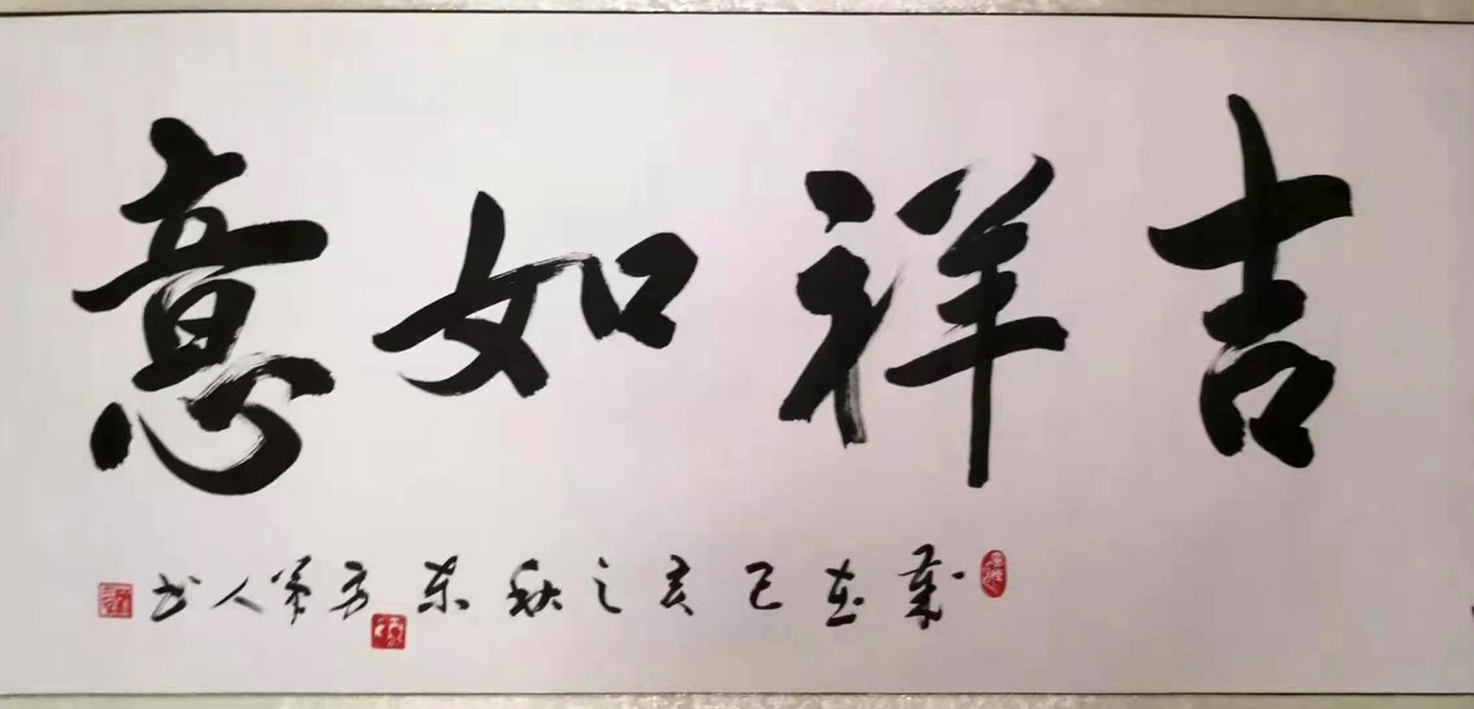 吉祥如意
歲在己亥之秋东方第人书